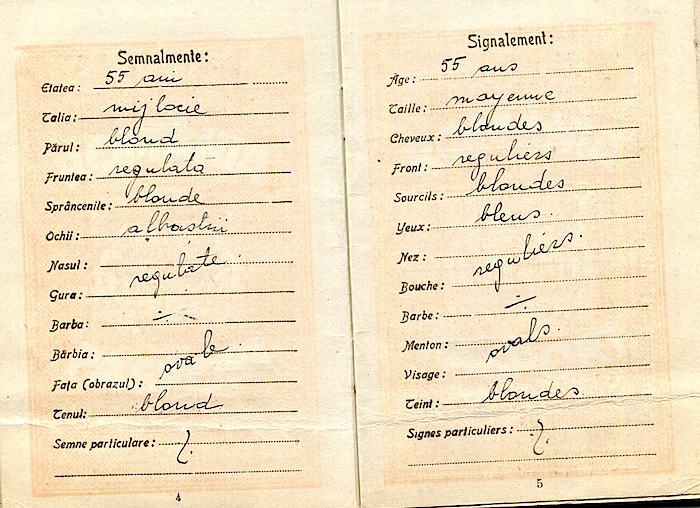 Semnalmente:
Etatea: 55 ani
Talia: mijlocie
Părul: blond
Fruntea: regulată
Sprâncenile: blonde
Ochii: albastrii
Nasul:
regulate
Gura:
Barba: —
Bărbia:
ovale
Fața (obrazul):
Tenul: blond
Semne particulare:
4
Signalement:
Âge: 55 ans
Taille: moyenne
Cheveux: blondes
Front: reguliers
Sourcils: blondes
Yeux: bleus.
Nez:
reguliers.
Bouche:
Barbe: —
Menton:
ovals.
Visage:
Teint: blondes
Signes particuliers:
5